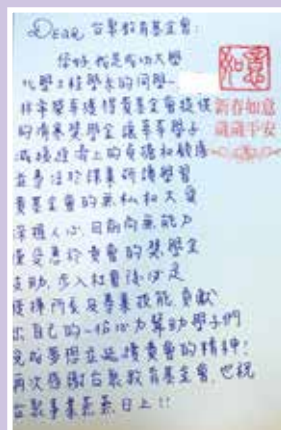 Dear 台聚教育基金會:
你好,我是成功大學
化學工程學系的同學-
非常榮幸獲得貴基金會提供
的清寒獎學金,讓莘莘學子
減摟經濟上的負擔和
並專注於
貴基金會的無私和大愛
深獲人心,目前尚無能力
僅受惠於貴會的獎學金
支助,步入社會後必定
發揮所長及專業技能,貢獻
出自己的一份心力幫助學子們
完成夢想並延續貴會的精神!
再次感謝台聚教育基金會,也祝
台聚事業蒸蒸日上!!
如意
新春如意
歲歲平安